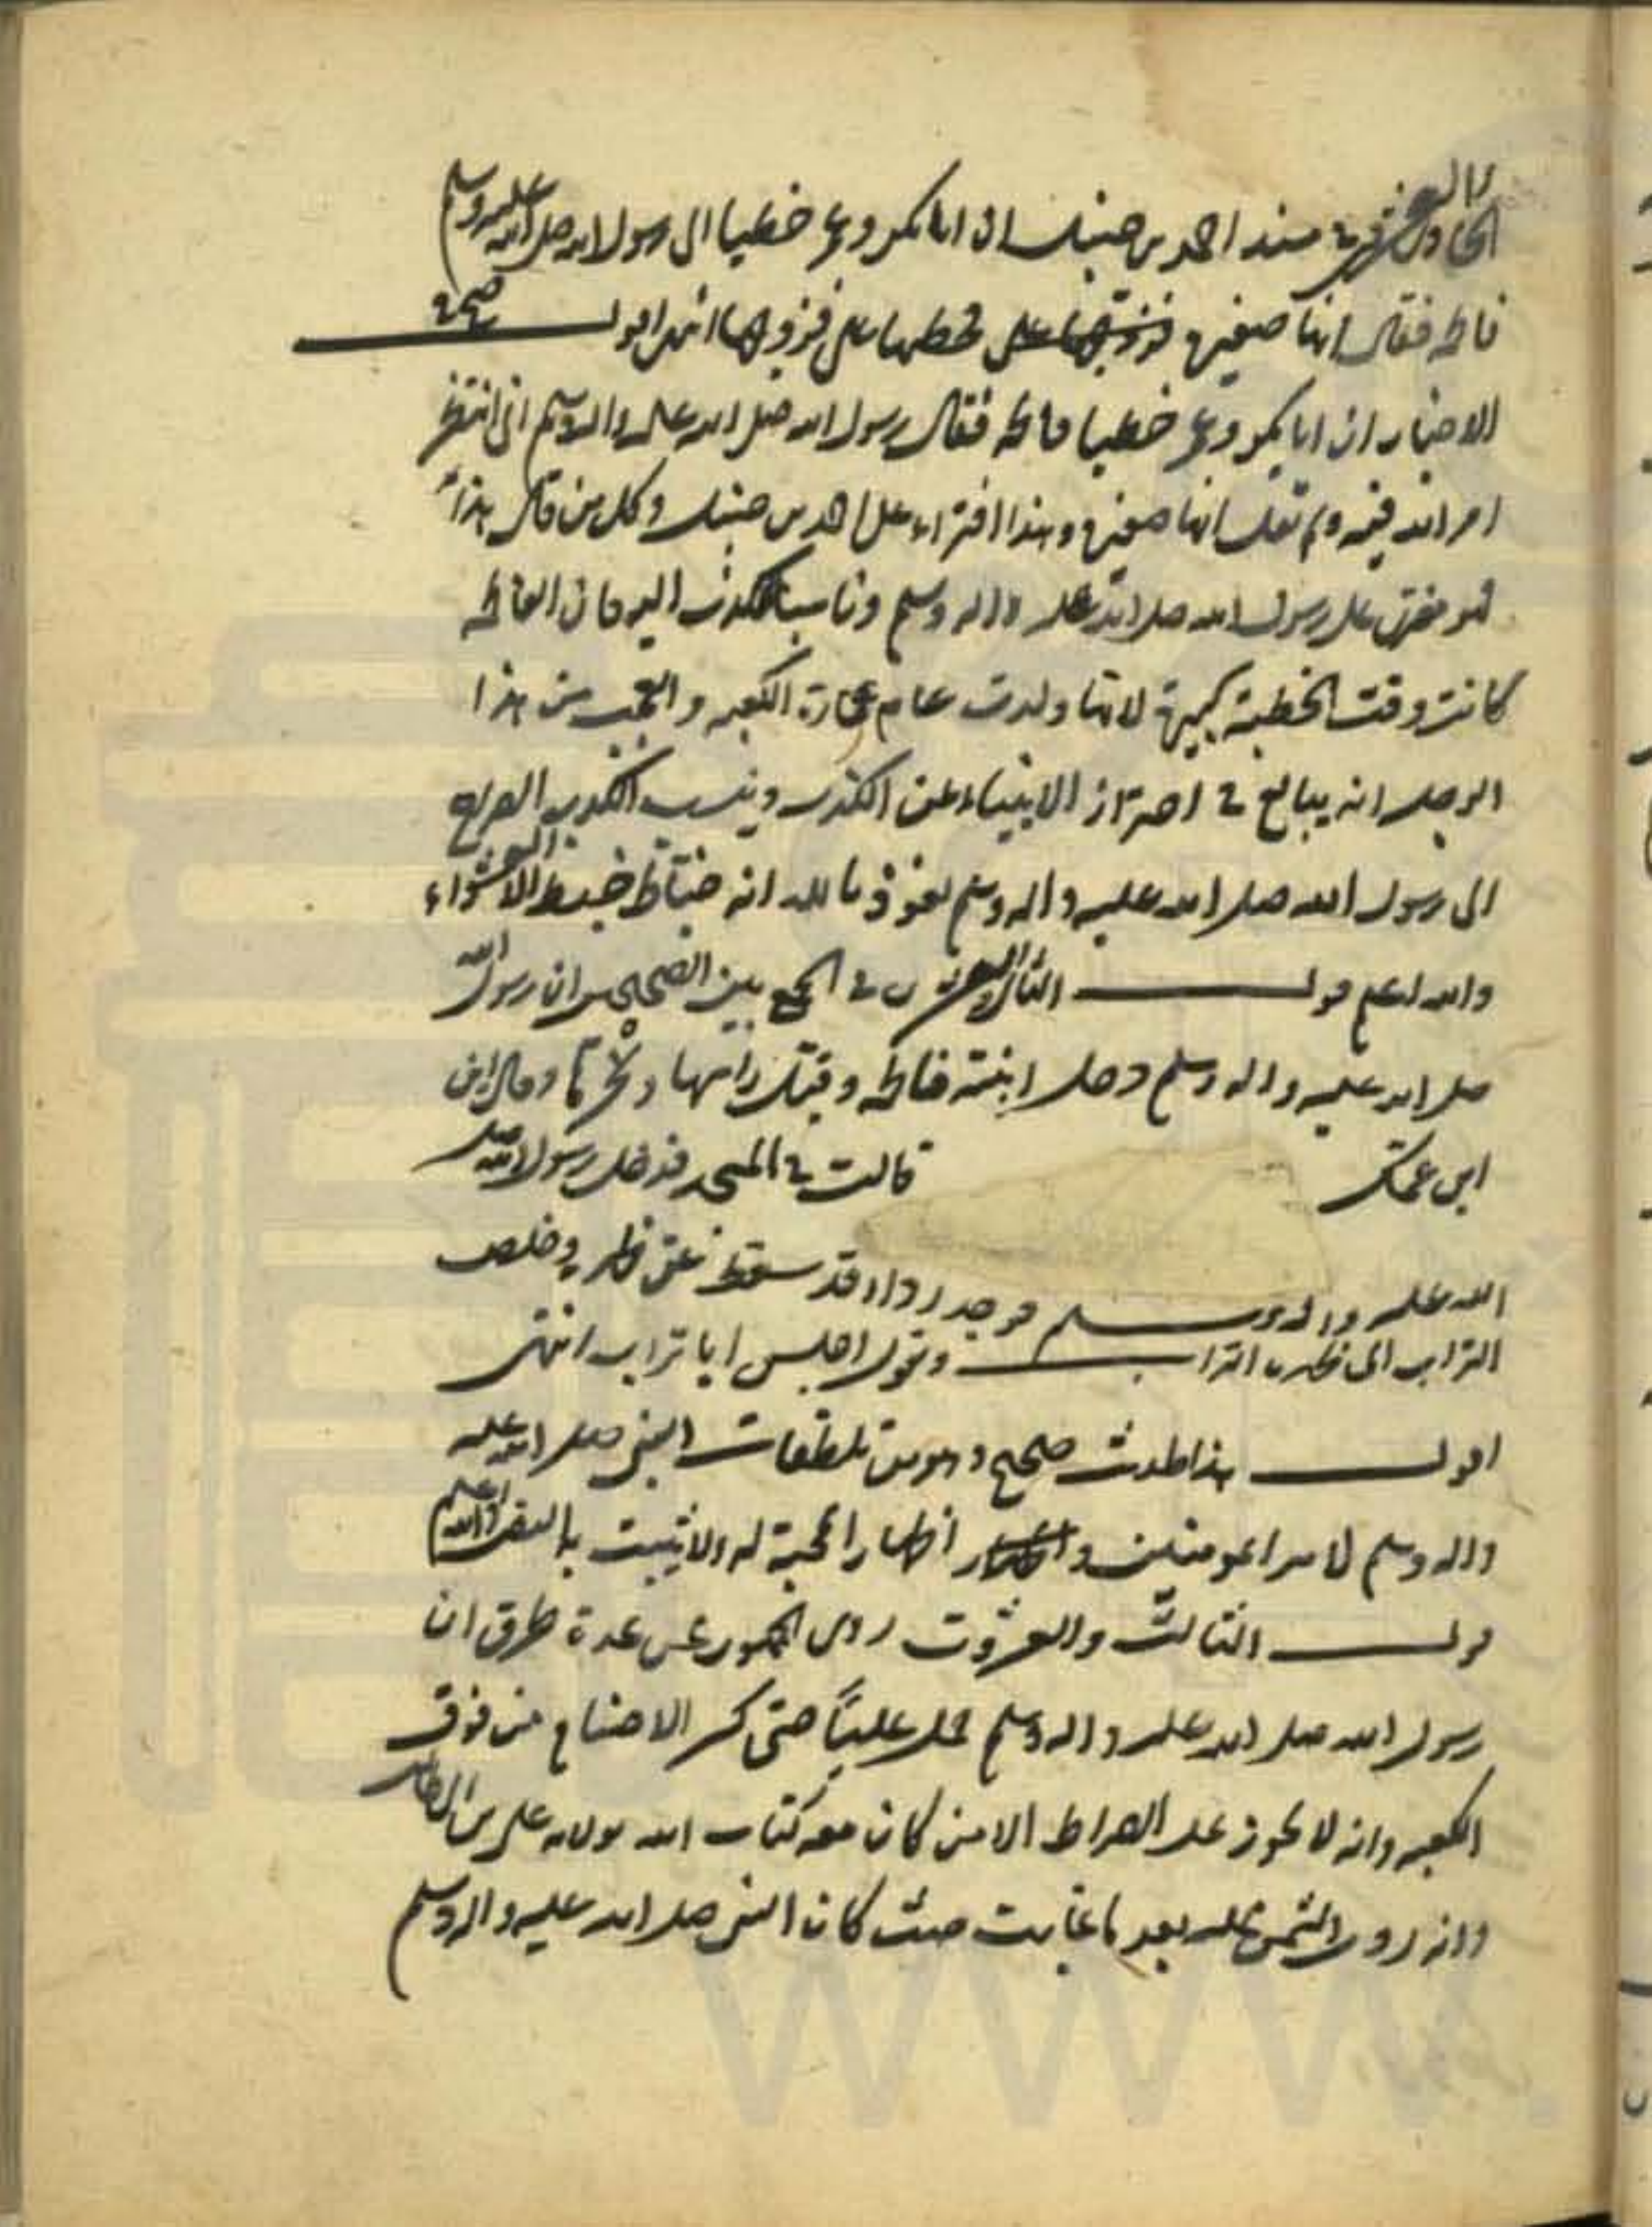 الحادي والعشرون في مسند احمد بن حنبل ان ابا بكر وعمر خطبا الى رسول الله صلى الله عليه وسلم
فاطمة فقال انها صغيرة فخطبها على فزوجها انتهى اقول صح في
الاخبار ان ابا بكر وعمر خطبا فاطمة فقال رسول الله صلى الله عليه واله وسلم انى انتظر
امر الله فيه ولم تقل انها صغيرة وهذا افتراء على احمد بن حنبل وكل من قال هذا
فهو مفتر على رسول الله صلى الله عليه واله وسلم وناسب الكذب اليه فان الفاطمة
كانت وقت الخطبة كبيرة لانها ولدت عام عمارة الكعبه والعجب من هذا
الرجل انه يبالغ في احتراز الانبياء عن الكذب وينسب الكذب الصريح
الى رسول الله صلى الله عليه واله وسلم نعوذ بالله انه خباط خبط العشواء
والله اعلم قول الثانى والعشرون في الجمع بين الصحيحين ان رسول الله
صلى الله عليه واله وسلم دخل ابنته فاطمة وقبل راسها ونحرها وقال اين
ابن عمك قالت في المسجد فدخل رسول الله صلى
الله عليه واله وسلم فوجد رداءه قد سقط عن ظهره وخلص
التراب الى ظهره التراب ويقول اجلس ابا تراب انتهى
اقول هذا حديث صحيح وهو من تلطفات النبى صلى الله عليه
واله وسلم لامير المومنين و اظهار المحبة له ولا يثبت به النص والله اعلم
قول الثالث والعشرون روى الجمهور عن عدة طرق ان
رسول الله صلى الله عليه واله وسلم حمل عليّا حتى كسر الاصنام من فوق
الكعبه وانه لا يجوز على الصراط الا من كان معه كتاب الله بولايه على بن ابى طالب
وانه ردت الشمس عليه بعد ما غابت حيث كان النبى صلى الله عليه واله وسلم